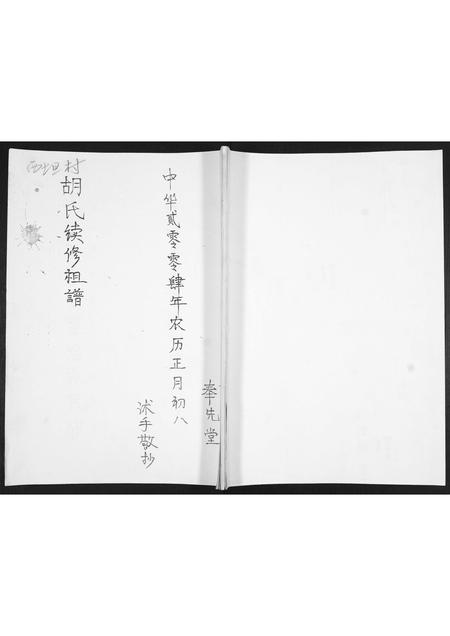 西坦村
胡氏续修祖譜
中华贰零零肆年农历正月初八
沭手敬抄
奉先堂